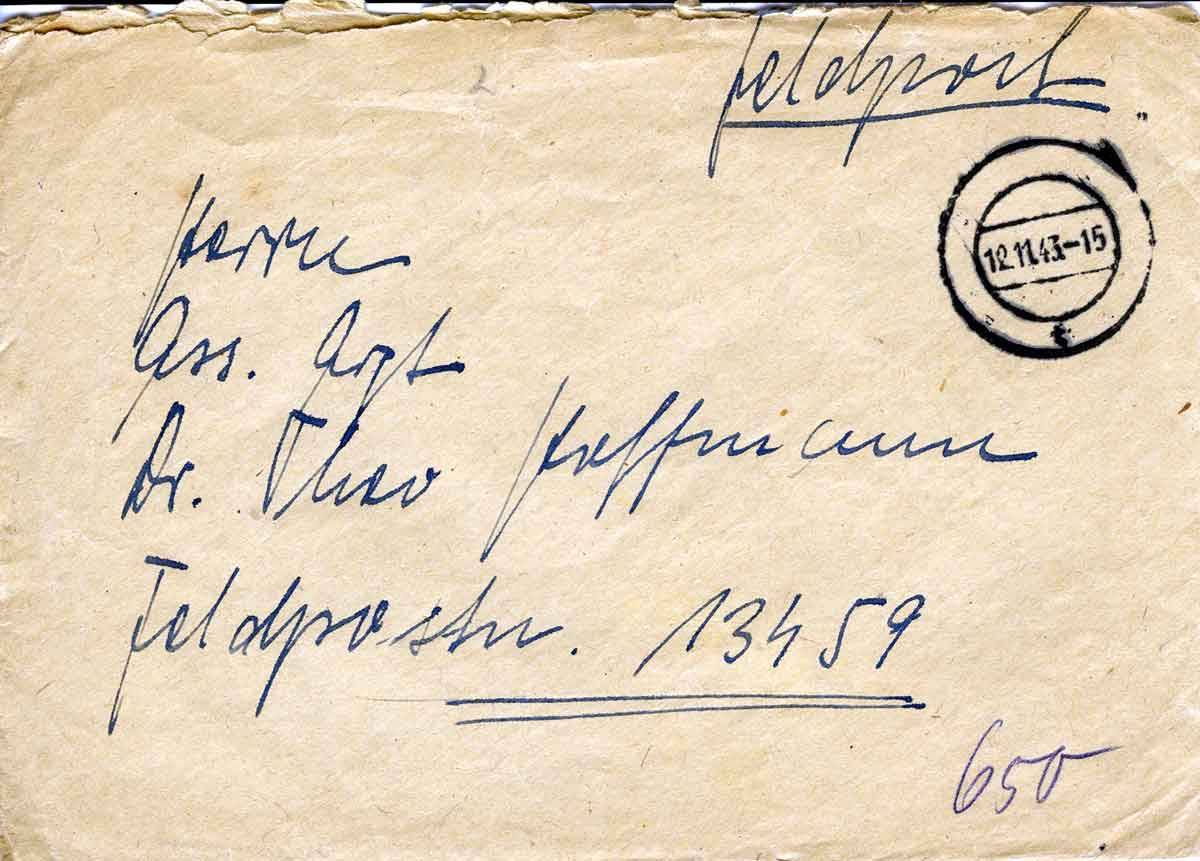 Feldpost
12.11.43.-15
t
Herrn
Ass. Arzt
Dr. Theo Hoffmann
Feldpostn. 13459
650